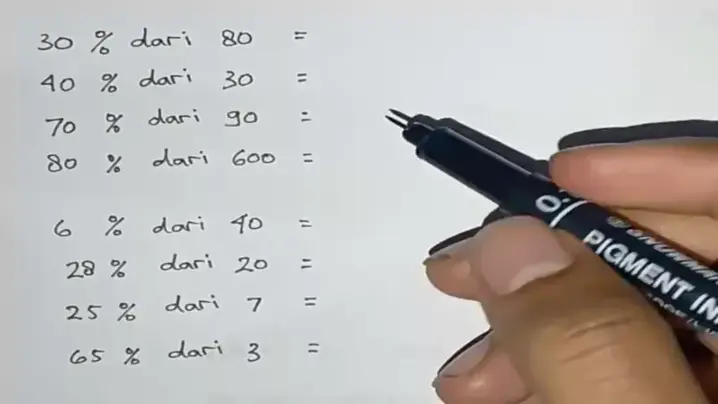 30 % dari 80 =
40 % dari 30 =
70 % dari 90 =
80 % dari 600 =
6 % dari 40 =
28 % dari 20 =
25 % dari 7 =
65 % dari 3 =
PIGMENT IN